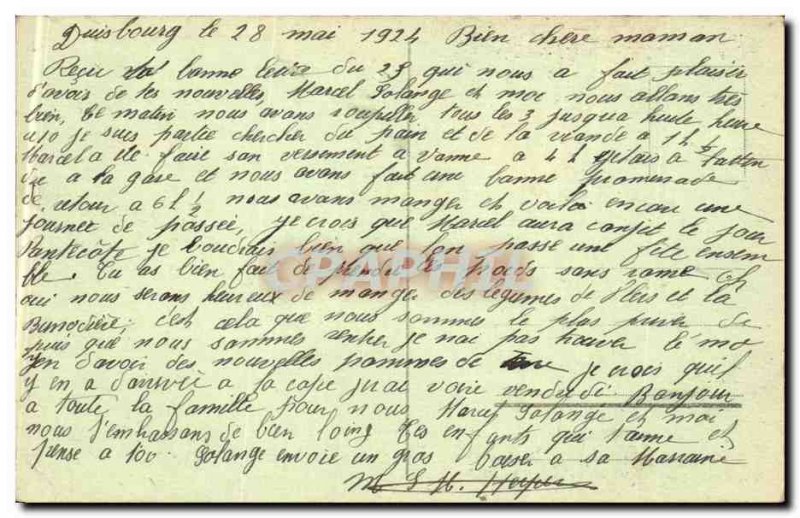 Duisbourg le 28 mai 1924 Bien chere maman
Reçu ta banne letre du 25 qui nous a fait plaisir
d'avoir de tes nouvelles, Marcel Solange et moi nous allons tres
bien, Ce matin nous avons roupiller tous les 3 jusqua huite heure
je suis partie chercher du pain et de la viande a 1h
Marcel a été faire son versement a a 4h jetais a l'atten
dre a la gare et nous avons fait une banne promenade
de retour a 6h½ nous avans manger et voila encau une
journee de passee, je crois que Marcel aura conjet le jour
Pantecôte je voudrais bien que l'on passe une fête ensem
ble. Tu as bien fait de prendre les poids sans rame et
oui nous serons heureux de manger des légumes de Flers et la
c'est cela que nous sommes le plus priver de
puis que nous sommes rentrer je nai pas houver le mo
yen d'avoir des nouvelles pommes de terre je crois quil
y en a d'arrivée a la cope jirai voire vendredi Bonjour
a toute la famille pour nous Marcel Solange et moi
nous t'embrassans de bien loing tes enfants qui t'aime et
pense a toi. Solange envoie un gros baiser a sa Marraine
M S H.
CPAPHIL